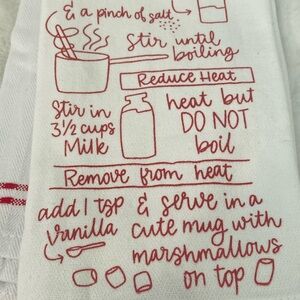 & a pinch of salt
Stir until
boiling
Reduce Heat
Stir in
3½ cups
Milk
heat but
DO NOT
boil
Remove from heat
add 1 tsp
vanilla
& serve in a
cute mug with
marshmallows
on top